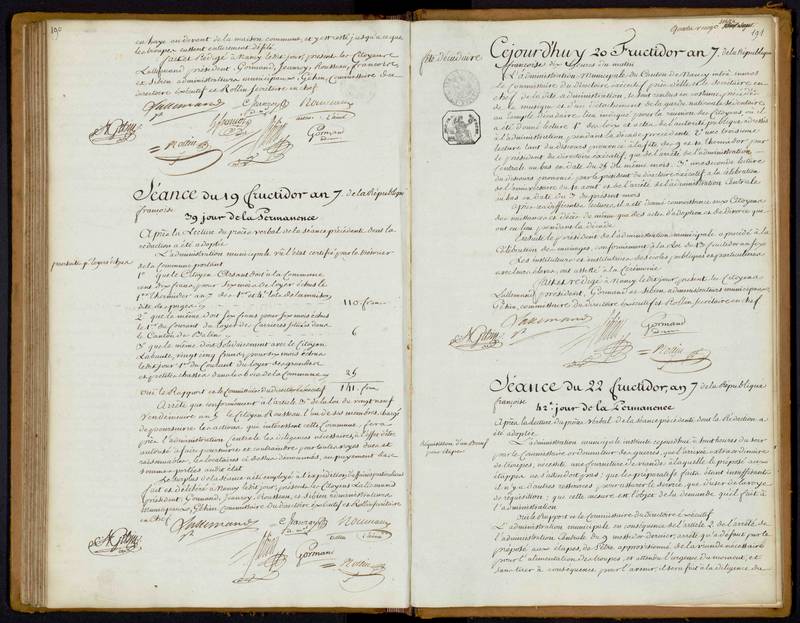 190
en haye au devant de la maison commune, et y est resté jusqu'à ce que
les troupes eussent entierement défilé.
fait et rédigé à Nancy les dits jour, présent les Citoyens
Lallemand président, Gormand, Jeanroy, Rousseau, francois
et Sibien administrateurs municipaux, Géhin, Commissaire du
directoire Exécutif et Rollin Secrétaire en chef
Lallemand
Gormand
Rollin
Séance du 19 fructidor an 7. de la République
françoise
39 jour de la Permanence
Après la Lecture du procès verbal de la séance précédente dont la
rédaction a été adoptée
poursuite pr loyers échus
L'administration municipale vû l'état certifié par le Receveur
de la Commune portant
1° que le Citoyen doit à la Commune
cent dix francs pour six mois de loyer échus le
1er Thermidor an 7 des 1er et 4e lots de la maison
dite des pages 110. francs
2° que le même doit six francs pour six mois échus
le 1er du Courant du loyer de Carrieres situés dans
le Canton de Balin 6
3° que le même doit Solidairement avec le Citoyen
Labaute, vingt cinq francs, pour six mois échus
les dits jour 1er du Courant du loyer des grandes
et petites chasses dans les bois de la Commune 25
Oui le Rapport et le Commissaire du directoire Exécutif 141. francs
Arrête que conformément à l'article 3 de la loi du vingt neuf
Vendemiaire an 5 le Citoyen Rousseau l'un de ses membres, chargé
de poursuivre les actions, qui intéressent cette Commune, fera
près l'administration Centrale les diligences nécessaires, à l'effet d'être
autorisé à faire poursuivre et contraindre par toutes voyes dues et
raisonnables, les locataires ci dessus dénommés, au payement des
sommes portées audit état
Le surplus de la séance a été employé à l'expédition d'affaires particulieres
fait et délibéré à Nancy les dits jour, présent les Citoyens Lallemand
président, Gormand, Jeanroy, Rousseau, et Sibien administrateurs
municipaux, Géhin, Commissaire du Directoire Exécutif et Rollin Secrétaire
en Chef
Lallemand
Gormand
Rollin
191
Cejourdhuy 20 Fructidor an 7. de la République
fête décadaire
françoise dix heures du matin
L'administration Municipale du Canton de Nancy intra muros
le Commissaire du Directoire exécutif près d'elle et le Secrétaire en
chef de la dite administration, se sont rendus en costume, précédés
de la musique et d'un détachement de la garde nationale sédentaire,
au temple décadaire, lieu indiqué pour la réunion des Citoyens, où il
a été donné lecture 1° des loix et actes de l'autorité publique adressés
à l'administration pendant la décade précédente 2° une troisieme
lecture tant du discours prononcé à la fête des 9 et 10 thermidor par
le président du directoire exécutif, que de l'arrêté de l'administration
Centrale en date du 24 du même mois. 3° une seconde lecture
du discours prononcé par le président du directoire exécutif à la célébration
de l'anniversaire du 10 aout et de l'arrêté de l'administration Centrale
en date du 7 du présent mois
Après ces différentes lectures, il a été donné connoissance aux Citoyens
des naissances et décès de même que des actes d'adoption et de divorce qui
ont eu lieu pendant la décade
Ensuite le président de l'administration municipale a procédé à la
Célébration des mariages, conformément à la Loi du 13 fructidor an six
Les instituteurs et institutrices des écoles, publiques et particulieres
avec leurs éleves, ont assisté à la Cérémonie
fait et rédigé à Nancy les dits jour présent les Citoyens
Lallemand président, Gormand et Sibien, administrateurs municipaux
Géhin, commissaire du directoire Exécutif et Rollin, Secrétaire en chef
Lallemand
Gormand
Rollin
Séance du 22 fructidor, an 7 de la République
françoise
42e jour de la Permanence
Après la lecture du procès Verbal de la séance précédente dont la Rédaction a
été adoptée
Réquisition d'un Boeuf
pour étapes
L'administration municipale instruite cejourd'hui à huit heures du soir
par le Commissaire ordonnateur des guerres, que l'arrivée extraordinaire
de troupes, nécessite une fourniture de viande à laquelle le préposé aux
étapes ne s'attendoit pas; que ses préparatifs faits étant insuffisants
il n'y a d'autres ressources pour assurer le service, que d'user de la voye
de réquisition; que cette mesure est l'objet de la demande qu'il fait à
l'administration
Oui le Rapport et le Commissaire du Directoire Exécutif
L'administration municipale en conséquence de l'article 2 de l'arrêté de
l'administration Centrale du 9 messidor dernier, arrête qu'à defaut par le
préposé aux étapes, de s'être approvisionné de la viande nécessaire
pour l'alimentation des troupes, et attendu l'urgence du moment, et
sans tirer à conséquence pour l'avenir, il sera fait à la diligence du